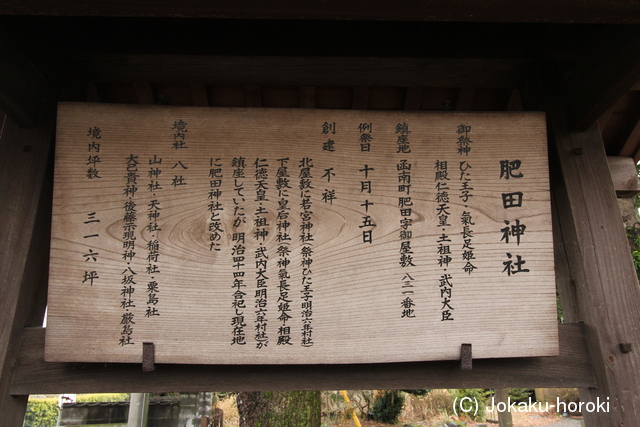 肥田神社
御祭神 ひた王子・氣長足姫命
相殿仁德天皇・土祖神・武内大臣
鎮座地 函南町肥田字御屋敷 八三一番地
例祭日 十月十五日
創建 不祥
北屋敷に若宮神社(祭神ひた王子明治六年村社)
下屋敷に皇后神社(祭神氣長足姫命・相殿
仁德天皇・土祖神・武内大臣明治六年村社)が
鎮座していたが 明治四十四年合祀し現在地
に肥田神社と改めた
境内社 八社
山神社・天神社・稲荷社・粟島社
大己貴神・後藤宗現明神・八坂神社・厳島社
境内坪数 三一六坪
(C) Jokaku-horoki